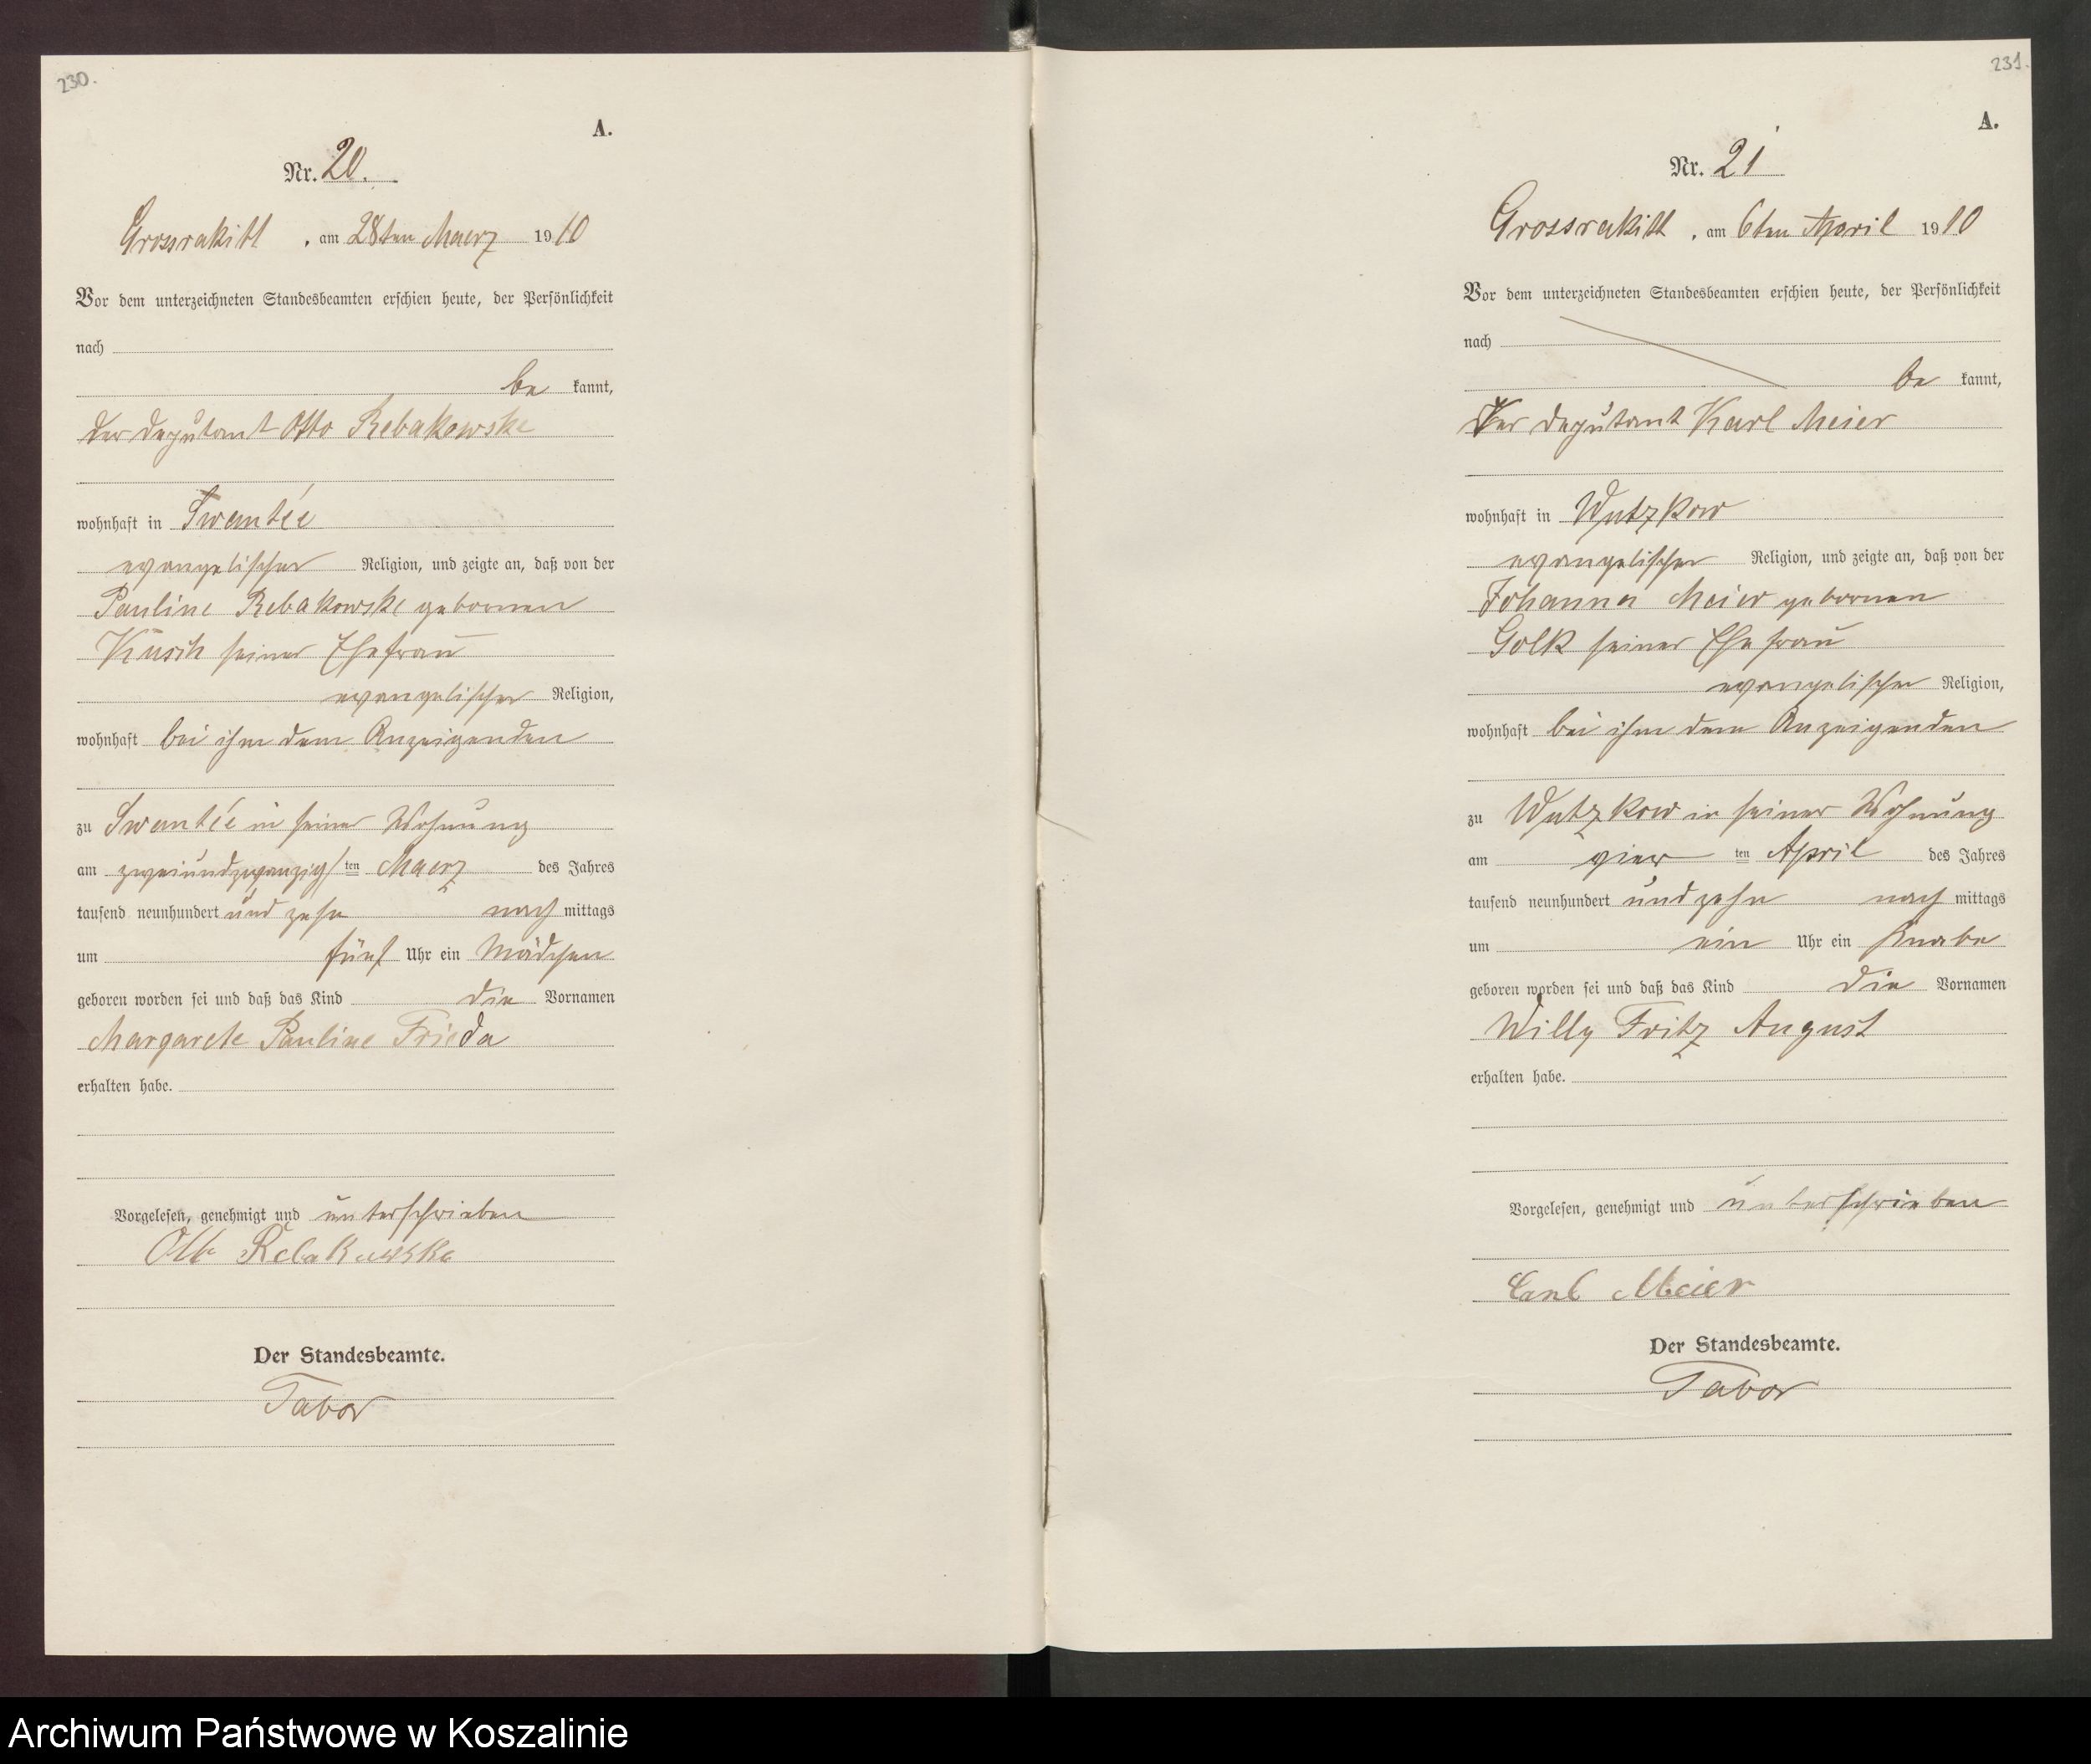 230.
A.
Nr. 20.
Grossrakitt, am 28ten Maerz 1910
Vor dem unterzeichneten Standesbeamten erschien heute, der Persönlichkeit
nach
be kannt,
der Deputant Otto Rebakowske
wohnhaft in Swantée
evangelischer Religion, und zeigte an, daß von der
Pauline Rebakowske gebornen
Kusch seiner Ehefrau
evangelischer Religion,
wohnhaft bei ihm dem Anzeigenden
zu Swantée in seiner Wohnung
am zweiundzwanzigsten Maerz des Jahres
tausend neunhundert und zehn nach mittags
um fünf Uhr ein Mädchen
geboren worden sei und daß das Kind die Vornamen
Margarete Pauline Frieda
erhalten habe.
Vorgelesen, genehmigt und unterschrieben
Otto Rebakowske
Der Standesbeamte.
Tabor
231.
A.
Nr. 21
Grossrakitt, am 6ten April 1910
Vor dem unterzeichneten Standesbeamten erschien heute, der Persönlichkeit
nach
be kannt,
Der Deputant Karl Meier
wohnhaft in Wutzkow
evangelischer Religion, und zeigte an, daß von der
Johanna Meier gebornen
Golk seiner Ehefrau
evangelischer Religion,
wohnhaft bei ihm dem Anzeigenden
zu Wutzkow in seiner Wohnung
am vier ten April des Jahres
tausend neunhundert und zehn nach mittags
um ein Uhr ein Knabe
geboren worden sei und daß das Kind die Vornamen
Willy Fritz August
erhalten habe.
Vorgelesen, genehmigt und unterschrieben
Carl Meier
Der Standesbeamte.
Tabor
Archiwum Państwowe w Koszalinie